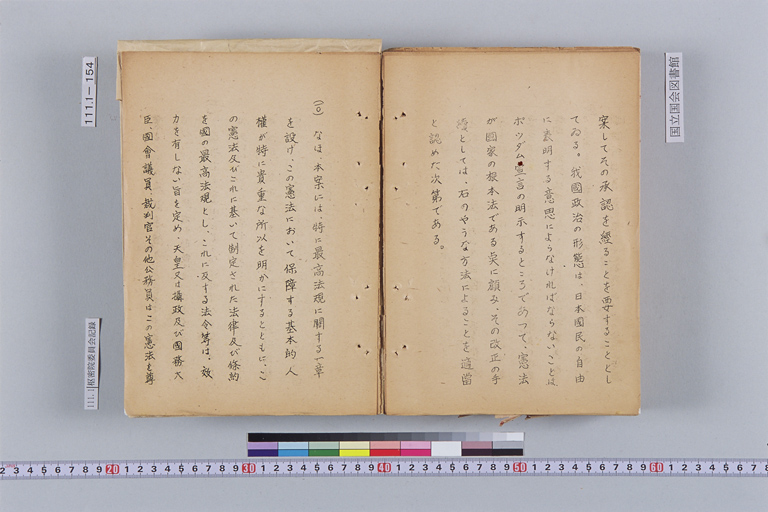 案してその承認を經ることを要することとし
てゐる。我國政治の形態は、日本國民の自由
に表明する意思によらなければならないことは
ポツダム宣言の明示するところであつて、憲法
が國家の根本法である点に顧み、その改正の手
續としては、右のやうな方法によることを適當
と認めた次第である。
(二) なほ、本案には、特に最高法規に關する一章
を設け、この憲法において保障する基本的人
權が特に貴重な所以を明かにするとともに、こ
の憲法及びこれに基いて制定された法律及び條約
を國の最高法規とし、これに反する法令等は、效
力を有しない旨を定め、天皇又は攝政及び國務大
臣、國會議員、裁判官その他公務員はこの憲法を尊
111.1-154
国立国会図書館
111.1 枢密院委員会記録
2 3 4 5 6 7 8 9 20 1 2 3 4 5 6 7 8 9 30 1 2 3 4 5 6 7 8 9 40 1 2 3 4 5 6 7 8 9 50 1 2 3 4 5 6 7 8 9 60 1 2 3 4 5 6 7